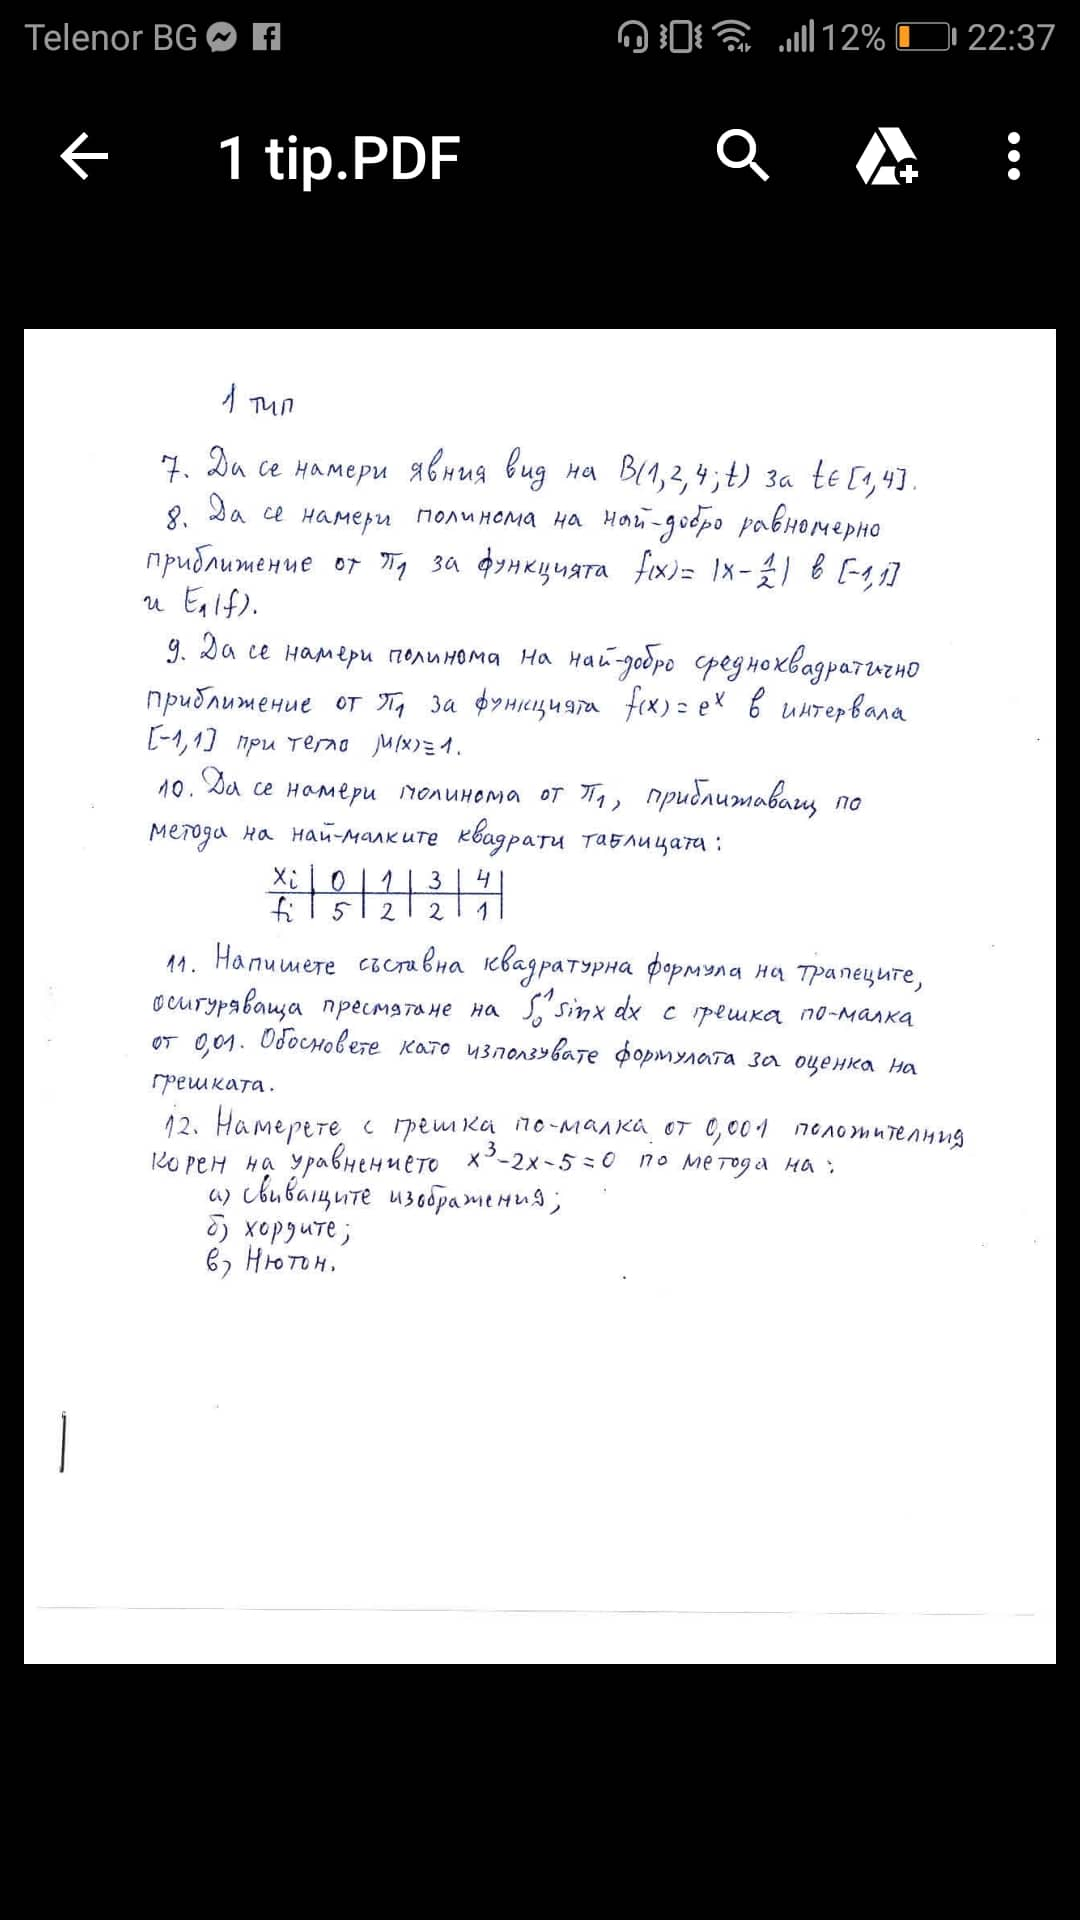 Telenor BG 12% 22:37
1 tip.PDF
1 тип
7. Да се намери явния вид на B(1,2,4;t) за t∈[1,4].
8. Да се намери полинома на най-добро равномерно
приближение от π₁ за функцията f(x)= |x-1/2| в [-1,1]
и E₁(f).
9. Да се намери полинома на най-добро средноквадратично
приближение от π₁ за функцията f(x)=eˣ в интервала
[-1,1] при тегло μ(x)≡1.
10. Да се намери полинома от π₁, приближаващ по
метода на най-малките квадрати таблицата:
xi | 0 | 1 | 3 | 4 |
fi | 5 | 2 | 2 | 1 |
11. Напишете съставна квадратурна формула на трапеците,
осигуряваща пресмятане на ∫₀¹ sinx dx с грешка по-малка
от 0,01. Обосновете като използвате формулата за оценка на
грешката.
12. Намерете с грешка по-малка от 0,001 положителния
корен на уравнението x³-2x-5=0 по метода на:
а) свиващите изображения;
б) хордите;
в) Нютон.